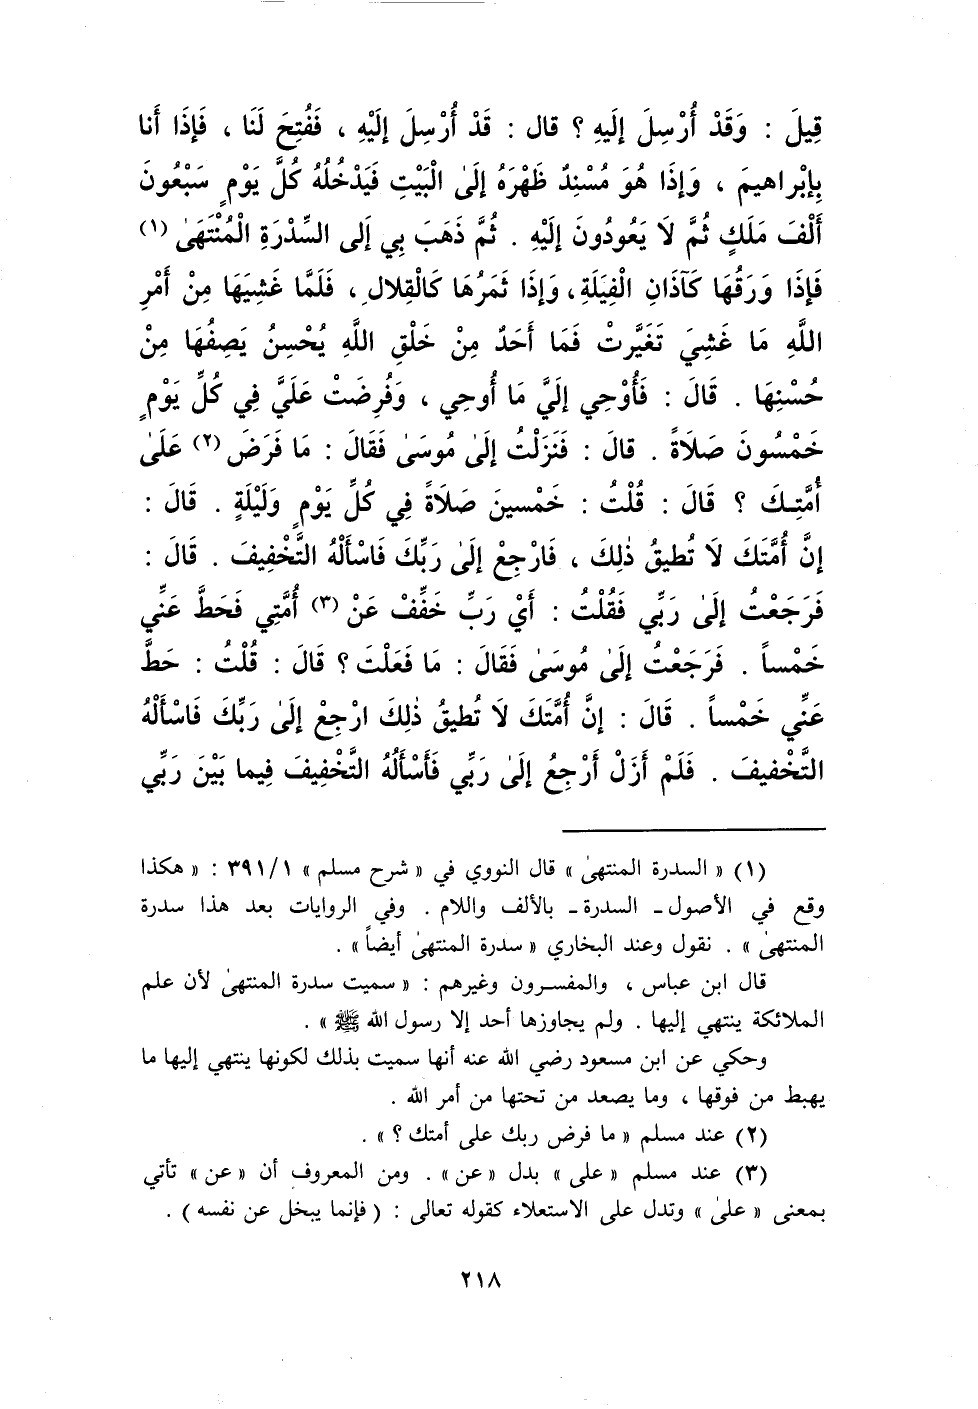 قِيلَ : وَقَدْ أُرْسِلَ إلَيهِ ؟ قال : قَدْ أُرْسِلَ إلَيْهِ ، فَفُتِحَ لَنَا ، فَإذَا أَنا
بِإبْراهيمَ ، وَإذَا هُوَ مُسْنِدٌ ظَهْرَهُ إلَىٰ الْبَيْتِ فَيَدْخُلُهُ كُلَّ يَوْمٍ سَبْعُونَ
أَلْفَ مَلَكٍ ثُمَّ لَا يَعُودُونَ إلَيْهِ . ثُمَّ ذَهَبَ بِي إلى السِّدْرَةِ الْمُنْتَهَىٰ (١)
فَإذَا وَرَقُهَا كَآذَانِ الْفِيَلَةِ، وَإذَا ثَمَرُهَا كَالْقِلالِ ، فَلَمَّا غَشِيَهَا مِنْ أَمْرِ
اللَّهِ مَا غَشِيَ تَغَيَّرتْ فَمَا أَحَدٌ مِنْ خَلْقِ اللَّهِ يُحْسِنُ يَصِفُهَا مِنْ
حُسْنِهَا . قَالَ : فَأُوْحِي إلَيَّ مَا أُوحِي ، وَفُرِضَتْ عَلَيَّ فِي كُلِّ يَوْمٍ
خَمْسُونَ صَلَاةً . قالَ : فَنَزَلْتُ إلَىٰ مُوسَىٰ فَقَالَ : مَا فَرَضَ (٢) عَلَىٰ
أُمَّتِكَ ؟ قَالَ : قُلْتُ : خَمْسينَ صَلَاةً فِي كُلِّ يَوْمٍ وَلَيْلَةٍ . قَالَ :
إنَّ أُمَّتَكَ لَا تُطيقُ ذٰلِكَ ، فَارْجِعْ إلَىٰ رَبِّكَ فَاسْأَلْهُ التَّخْفِيفَ . قَالَ :
فَرَجَعْتُ إلَىٰ رَبِّي فَقُلْتُ : أَيْ رَبِّ خَفِّفْ عَنْ (٣) أُمَّتِي فَحَطَّ عَنِّي
خَمْساً . فَرَجَعْتُ إلَىٰ مُوسَىٰ فَقَالَ : مَا فَعَلْتَ ؟ قَالَ : قُلْتُ : حَطَّ
عَنِّي خَمْساً . قَالَ : إنَّ أُمَّتَكَ لَا تُطيقُ ذٰلِكَ ارْجِعْ إلَىٰ رَبِّكَ فَاسْأَلْهُ
التَّخْفيفَ . فَلَمْ أَزَلْ أَرْجِعُ إلَىٰ رَبِّي فَأَسْأَلُهُ التَّخْفِيفَ فِيما بَيْنَ رَبِّي
(١) « السدرة المنتهىٰ » قال النووي في « شرح مسلم » ٣٩١/١ : « هكذا
وقع في الأصول ـ السدرة ـ بالألف واللام . وفي الروايات بعد هذا سدرة
المنتهىٰ » . نقول وعند البخاري « سدرة المنتهىٰ أيضاً » .
قال ابن عباس ، والمفسرون وغيرهم : « سميت سدرة المنتهىٰ لأن علم
الملائكة ينتهي إليها . ولم يجاوزها أحد إلا رسول الله ﷺ » .
وحكي عن ابن مسعود رضي الله عنه أنها سميت بذلك لكونها ينتهي إليها ما
يهبط من فوقها ، وما يصعد من تحتها من أمر الله .
(٢) عند مسلم « ما فرض ربك على أمتك ؟ » .
(٣) عند مسلم «على» بدل «عن» . ومن المعروف أن «عن» تأتي
بمعنى « علىٰ » وتدل على الاستعلاء كقوله تعالى : ( فإنما يبخل عن نفسه ) .
٢١٨